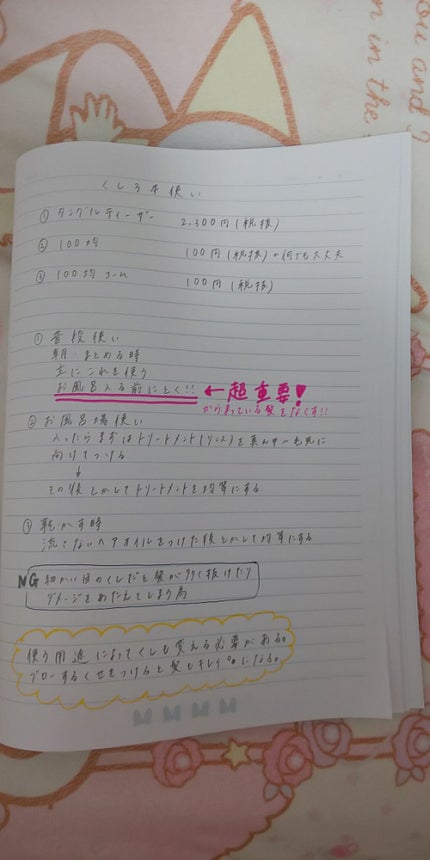 you and
in the
くし3本使い
① タングルティーザー 2,300円(税抜)
② 100均 100円(税抜)⇨何でも大丈夫
③ 100均コーム 100円(税抜)
① 普段使い
朝・まとめる時
主にこれを使う
お風呂入る前にとく!! ← 超重要!
からまっている髪をなくす!!
② お風呂場使い
入ったらまずはトリートメント(リンス)を真ん中〜毛先に
向けてつける
↓
その後とかしてトリートメントを均等にする
③ 乾かす時
流さないヘアオイルをつけた後とかして均等にする
NG 細かい目のくしだと髪が多く抜けたり
ダメージをあたえてしまう為
使う用途によってくしも変える必要がある。
ブローするくせをつけると髪もキレイになる。